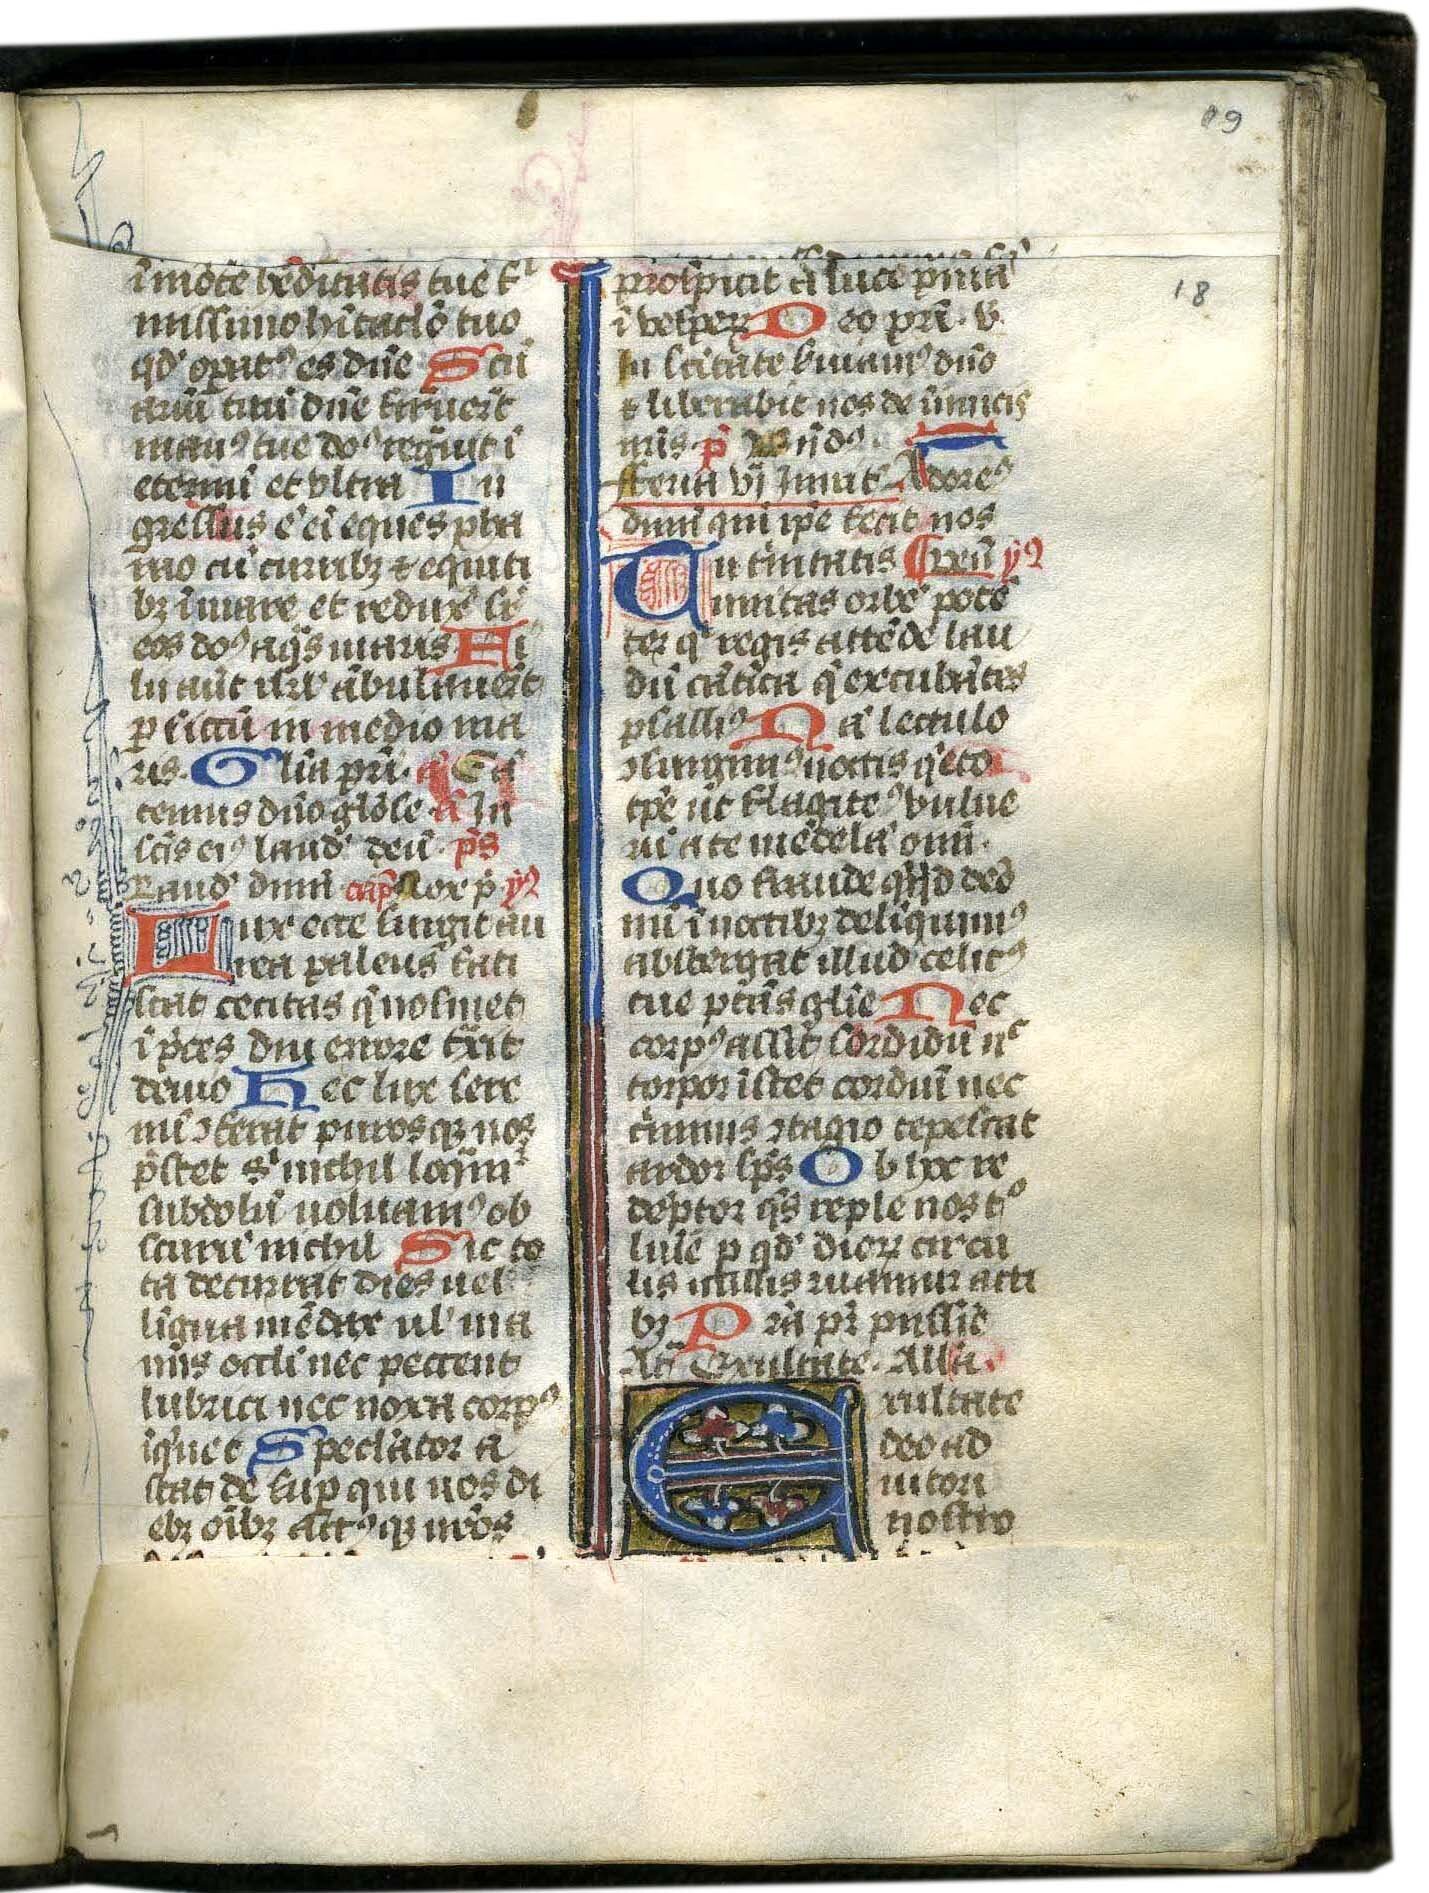 19
18
i mōte hēditatis tue f
missimo hītaclō tuo
qd' opat' es dn̄e Scū
ariū tuū dn̄e
man' tue do' regn̄it i
eternū et ultra In
gressus ē eī eques pha
rao cū curribꝫ & equiti
bꝫ i mare et redux' sr̄
eos do' aq̄s maris Fi
lii aūt isrl' ābulauer̄t
p siccū in medio ma
ris. Gl̄ia pr̄i. Cā
temus dn̄o gl̄ose In
scīs ei' laud' deū p̄s
Laud' dnm̄ cap̄ Nox p̄ ẏꝯ
Lux ecce surgit au
rea palens fati
scat cecitas q̄ nosmet
i p̄ceps diu errore tx̄it
deuio Hec lux sere
nū ↄferat purosqꝫ nos
p̄stet s' nichil loq̄m̄
subdolū uoluam' ob
scurū nichil Sic to
ta decurrat dies nel
līgua mēdax ul' ma
nus oculi nec peccent
lubrici nec noxa corp'
iq̄net Speclator a
stat de sup qui nos di
ebꝫ oībꝫ act' qꝫ nr̄os
prospicit a luce prima
i vesperꝫ Deo pr̄i. v.
In scītate suiam' dn̄o
& liberabit nos de inimicis
nr̄is p̄
Feria vj Inuit' Adore'
dnm̄ qui ip̄e fecit nos
In trinitatis ẏꝯ
Tu t̄nitatis unitas orbē potē
ter q regis attēde lau
dū cātica q̄ excubātes
psallim' Nā lectulo
ↄsurgim' noctis q̄eto
tp̄e ut flagitem' vulne
rū a te medelā oīm.
Quo fraude q̄cq̄d demo
nū i noctibꝫ deliquim'
abstergat illud celit'
tue p̄tās gl̄ie Nec
corp' assit sordidū nc̄
torpor istet cordiū nec
c̄minis ↄtagio tepescat
ardor sp̄s Ob hoc re
deptor q̄s reple nos t'
lumīe p qd' dierꝫ circu
lis nullis ruamur acti
bꝫ Pr̄a pr̄ piissīe
An̄ Exultate. All'a.
Exultate
deo ad
iutori
nostro